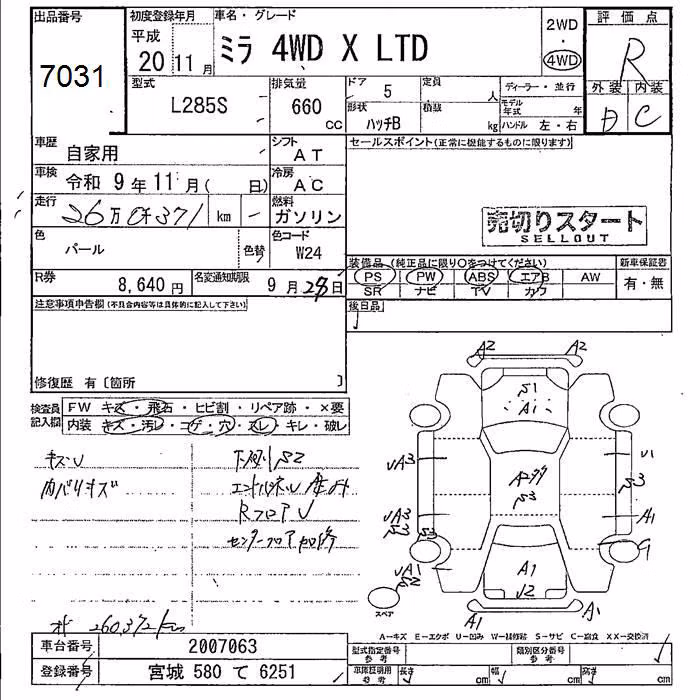 出品番号
7031
初度登録年月
平成
20 11月
車名・グレード
ミラ 4WD X LTD
2WD
・
4WD
評価点
R
外装 内装
D C
型式
L285S
排気量
660
CC
ドア
5
定員
人
形状
ハッチB
積載
kg
ディーラー・並行
モデル年式 年
ハンドル 左・右
車歴
自家用
シフト
AT
車検
令和 9年11月( 日)
冷房
AC
走行
26万0千371 km
燃料
ガソリン
色
パール
色替
色コード
W24
R券
8,640円
名変通知期限
9月28日
セールスポイント(正常に機能するものに限ります)
売切りスタート
SELLOUT
装備品(純正品に限り○をつけてください)
新車保証書
PS PW ABS エアB AW
有・無
SR ナビ TV カワ
後日品
注意事項申告欄(不具合内容等は具体的に記入して下さい)
修復歴 有〔箇所 〕
検査員記入欄
FW キズ・飛石・ヒビ割・リペア跡・×要
内装 キズ・汚レ・コゲ・穴・スレ・キレ・破レ
キズU
内バリキズ
下廻りS2
RフロアU
センターフロア加修
オ 260,372km
A2 A2
S1
A1
UA3
U1
S3
S3
UA3
S3
S3
A1
G
UA1
S2
A1
U2
A1 A1
スペア
A-キズ E-エクボ U-凹み W-補修跡 S-サビ C-腐食 XX-交換済
車台番号
2007063
登録番号
宮城 580 て 6251
型式指定番号
参考
類別区分番号
参考
車庫証明用
参考
長さ cm
幅 cm
高さ cm